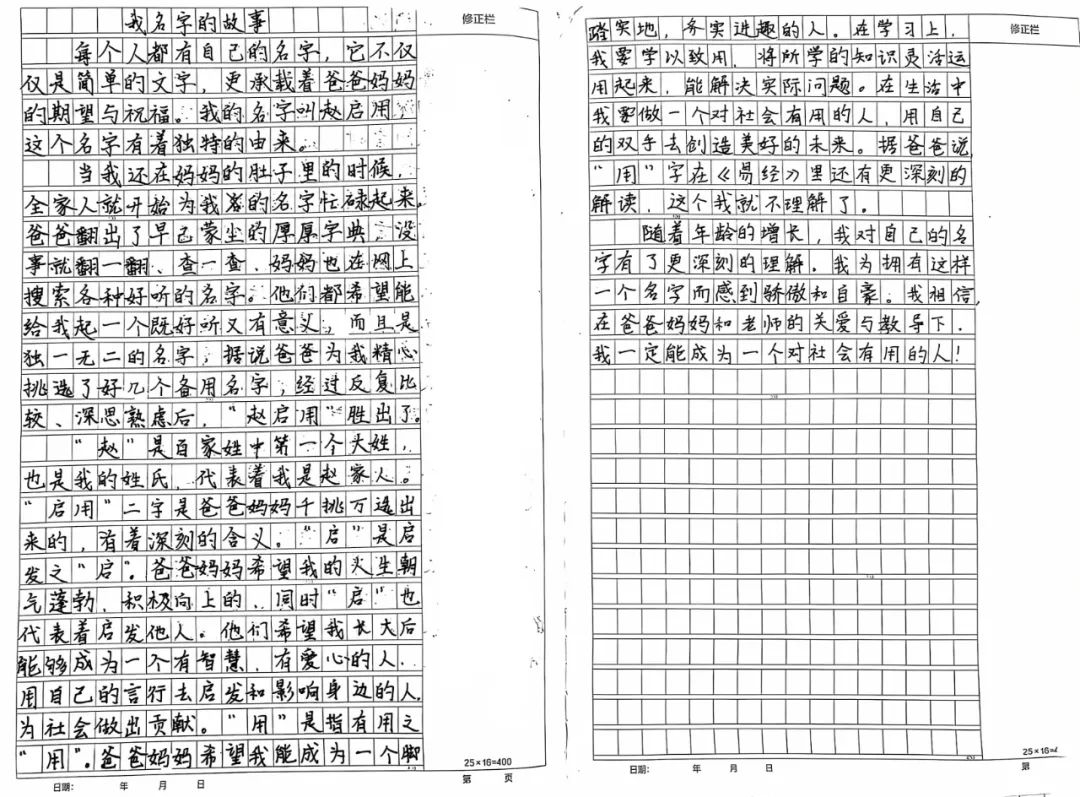 我名字的故事
修正栏
每个人都有自己的名字，它不仅
仅是简单的文字，更承载着爸爸妈妈
的期望与祝福。我的名字叫赵启用，
这个名字有着独特的由来。
当我还在妈妈的肚子里的时候，
全家人就开始为我的名字忙碌起来。
爸爸翻出了早已蒙尘的厚厚字典，没
事就翻一翻、查一查，妈妈也在网上
搜索各种好听的名字。他们都希望能
给我起一个既好听又有意义，而且是
独一无二的名字，据说爸爸为我精心
挑选了好几个备用名字，经过反复比
较、深思熟虑后，“赵启用”胜出了。
“赵”是百家姓中第一个大姓，
也是我的姓氏，代表着我是赵家人。
“启用”二字是爸爸妈妈千挑万选出
来的，有着深刻的含义。“启”是启
发之“启”。爸爸妈妈希望我的人生朝
气蓬勃，积极向上的，同时“启”也
代表着启发他人。他们希望我长大后
能够成为一个有智慧，有爱心的人，
用自己的言行去启发和影响身边的人，
为社会做出贡献。“用”是指有用之
“用”。爸爸妈妈希望我能成为一个脚
25×16=400
日期： 年 月 日 第 页
修正栏
踏实地，务实进趣的人。在学习上，
我要学以致用，将所学的知识灵活运
用起来，能解决实际问题。在生活中
我要做一个对社会有用的人，用自己
的双手去创造美好的未来。据爸爸说，
“用”字在《易经》里还有更深刻的
解读，这个我就不理解了。
随着年龄的增长，我对自己的名
字有了更深刻的理解。我为拥有这样
一个名字而感到骄傲和自豪。我相信，
在爸爸妈妈和老师的关爱与教导下，
我一定能成为一个对社会有用的人！
25×16=
日期： 年 月 日 第